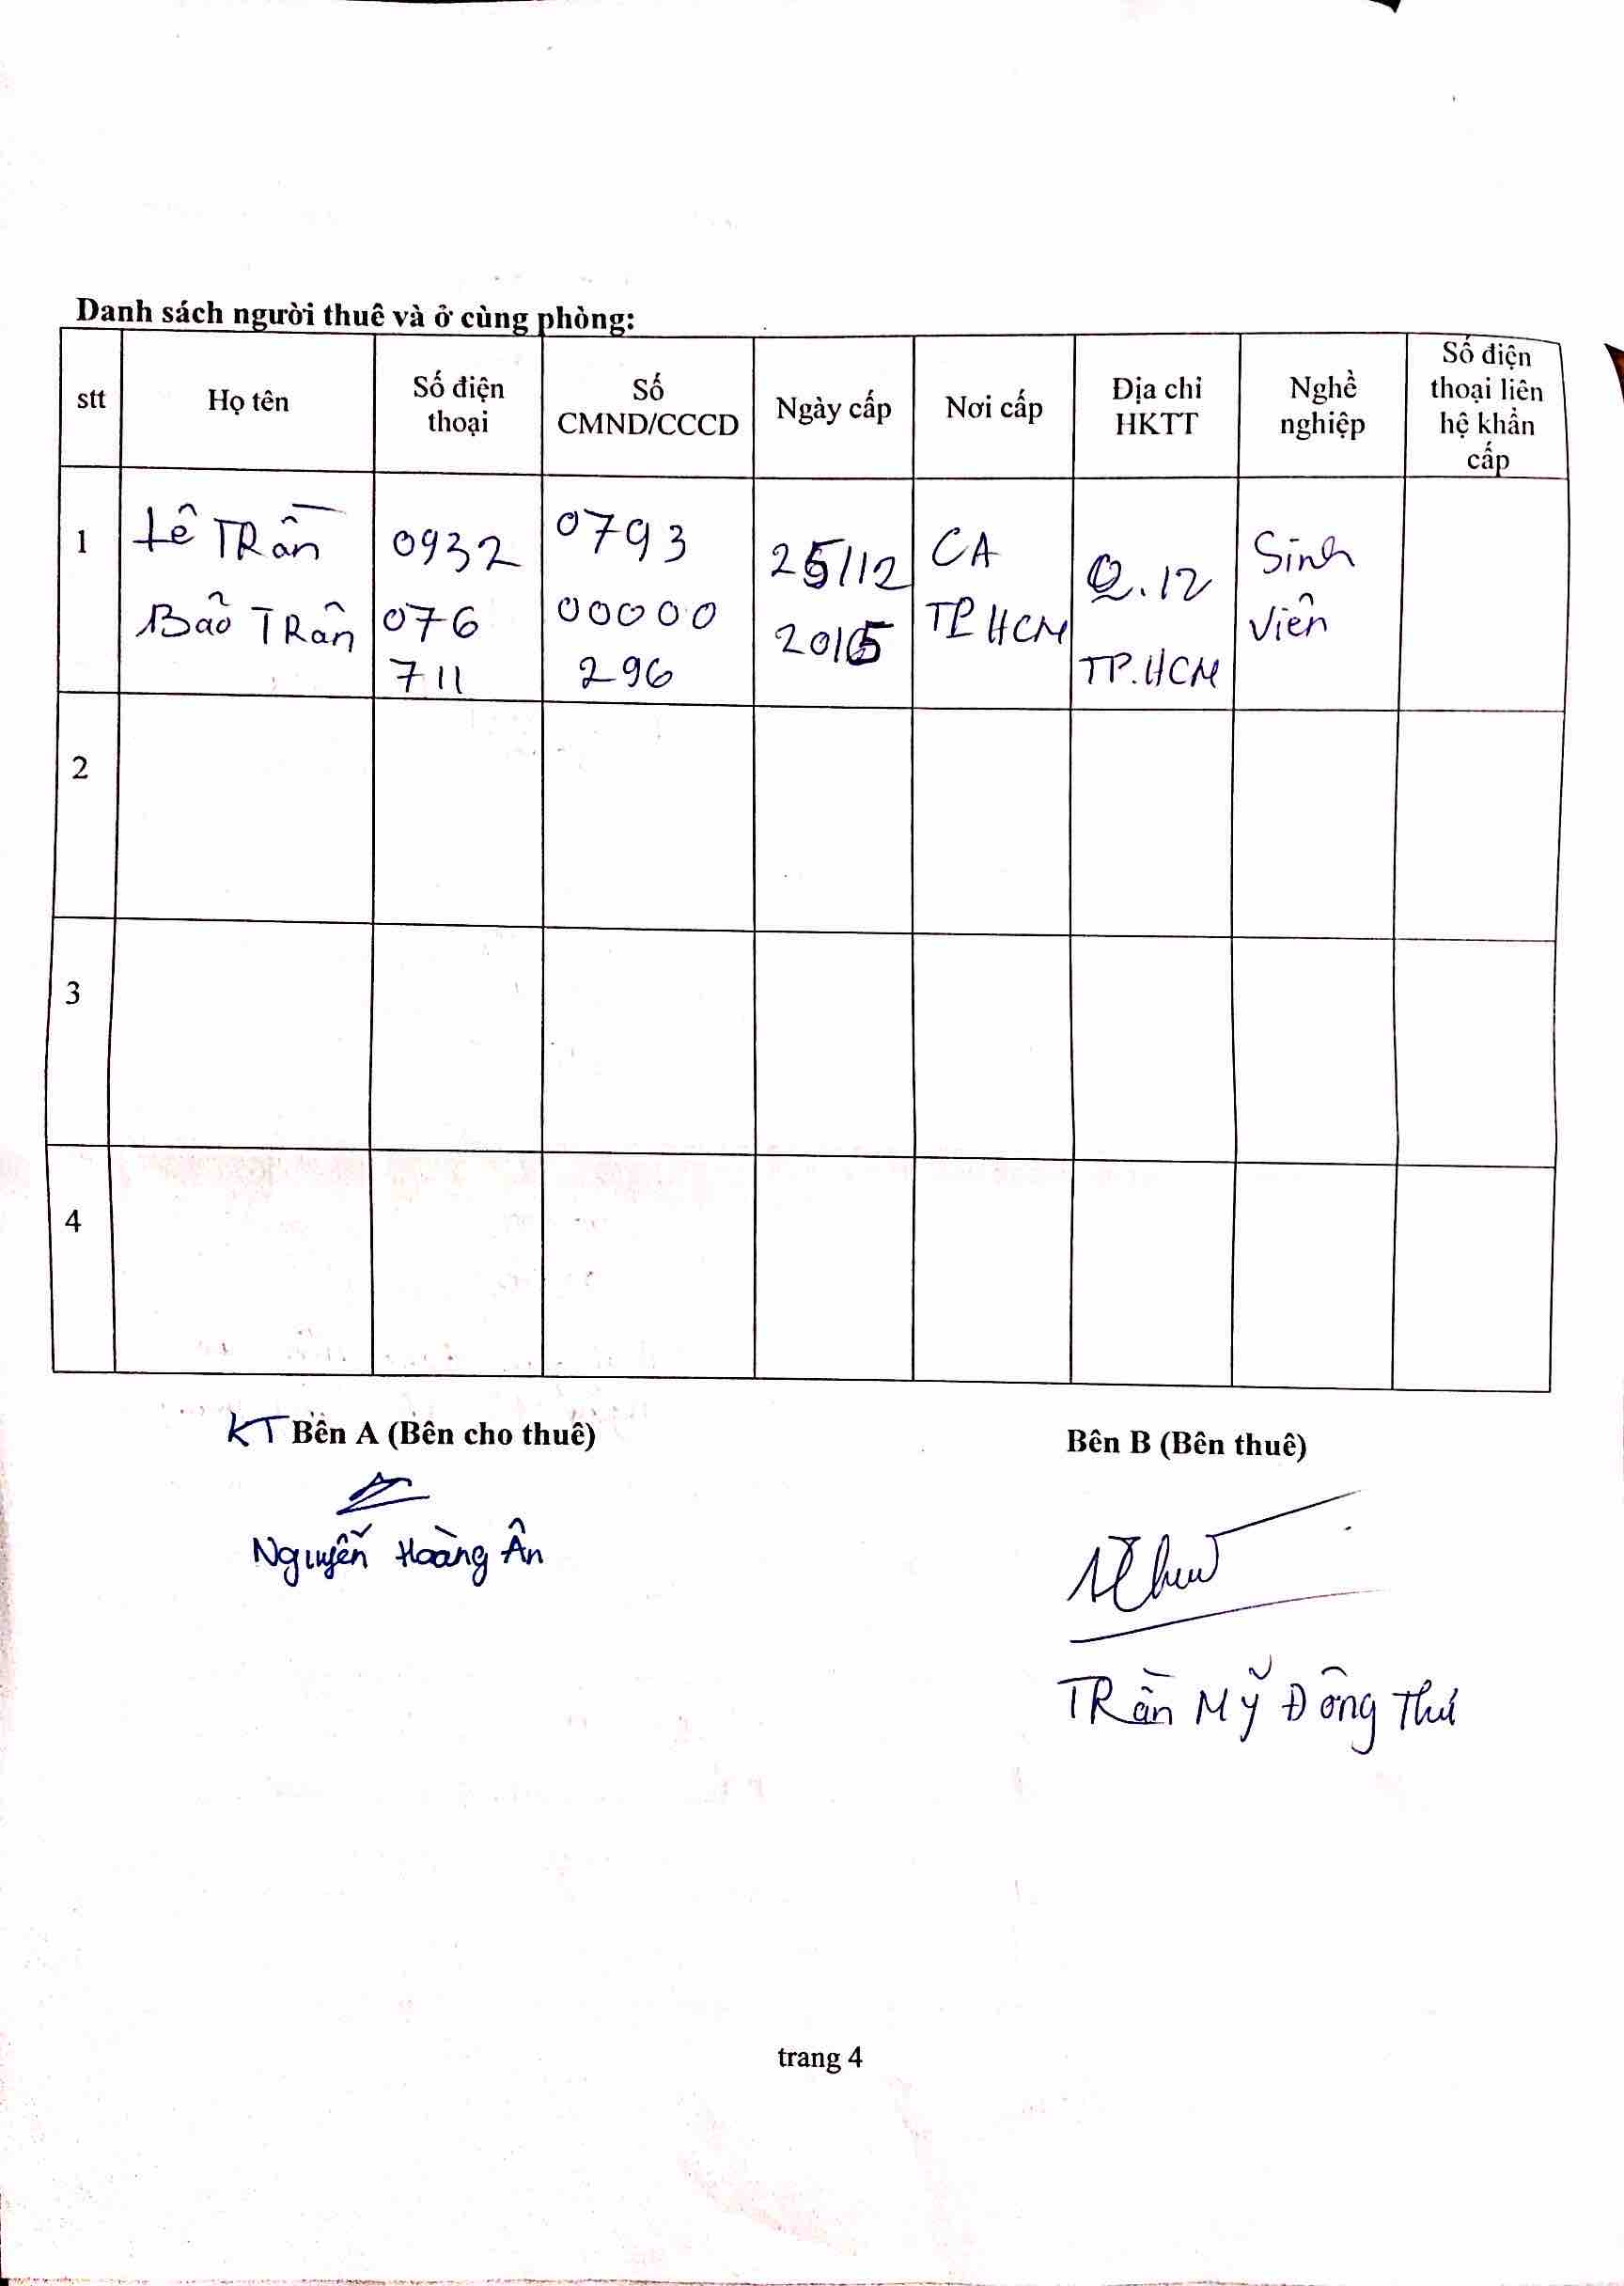 Danh sách người thuê và ở cùng phòng:
stt
Họ tên
Số điện
thoại
Số
CMND/CCCD
Ngày cấp
Nơi cấp
Địa chỉ
HKTT
Nghề
nghiệp
Số điện
thoại liên
hệ khẩn
cấp
1
Lê Trần
Bảo Trân
0932
076
711
0793
00000
296
25/12
2015
CA
TP HCM
Q.12
TP.HCM
Sinh
viên
2
3
4
KT Bên A (Bên cho thuê)
Bên B (Bên thuê)
Nguyễn Hoàng Ân
Thư
Trần Mỹ Đông Thư
trang 4